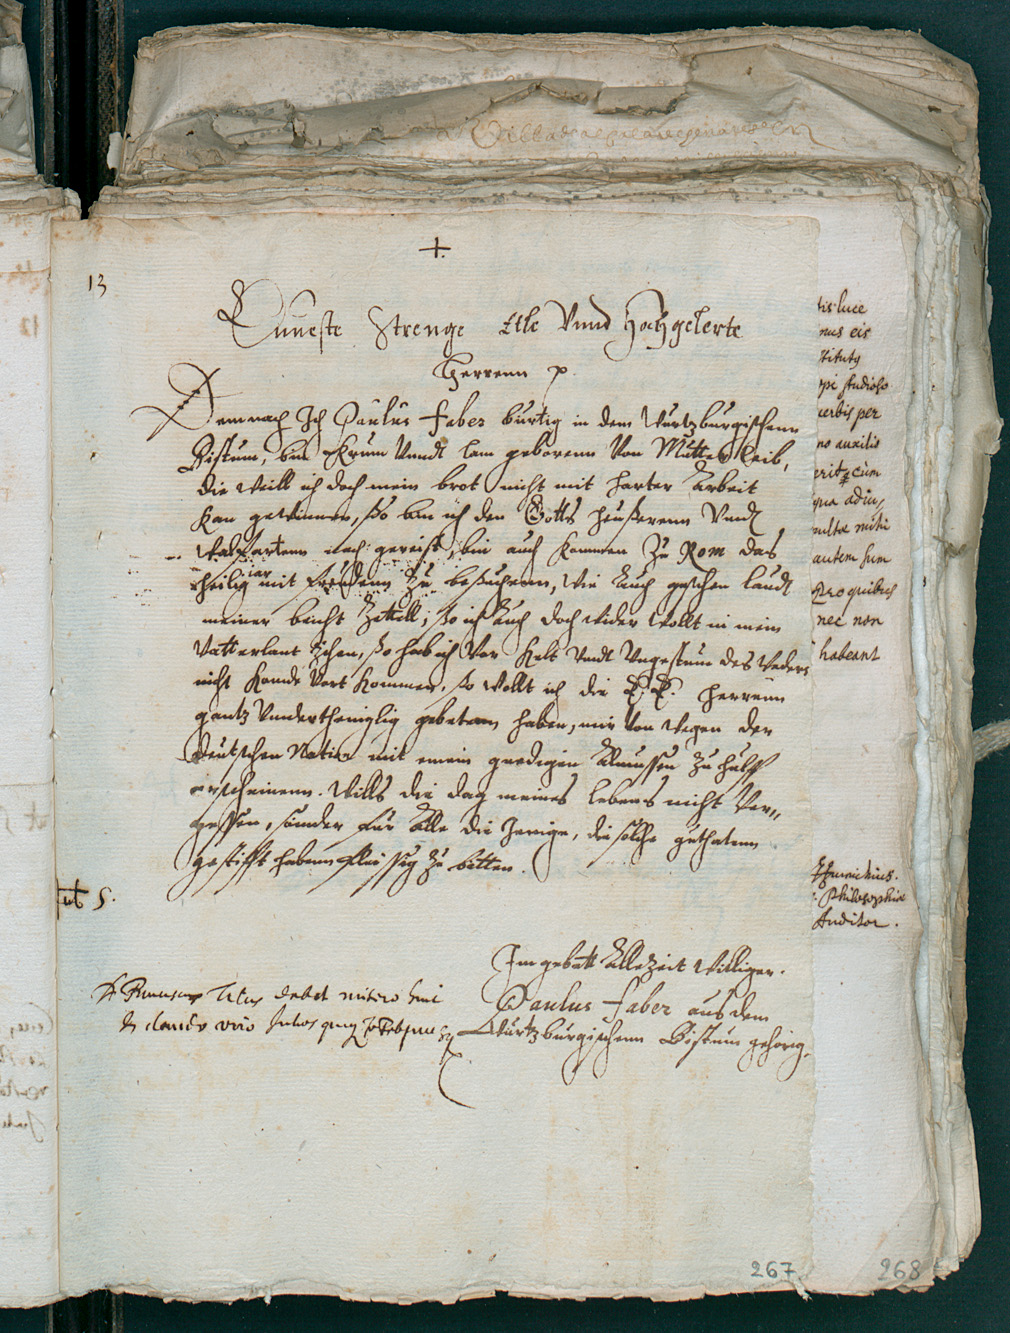 +
13
Ernueste Strenge Etle Vnnd Hochgelerte
Herrenn p
Demnach Ich Paulus Faber burtig in dem Wurtzburgischenn
Bistum, bin Krum vnndt lam geborenn von Mutter leib,
die weill ich doch mein brot nicht mit harter Arbeit
kan gewinnen, so bin ich den Gotts heußerenn vndt
walfartenn nach gereist, bin auch kommen zu Rom das
heilig iar mit freudenn zu besuchenn, wie auch geschen laudt
meiner beicht Zettell; so ich auch doch wider wollt in mein
Vatterlant Zihen, so hab ich vor kelt vndt vngestum des weders
nicht konde vort kommen, so wollt ich die E. E. Herrenn
gantz vnderthenigligh gebetten haben, mir von wegen der
Deutschen Nation mit einem gnedigen Almussen zu hulff
erscheinenn. Wills die dag meines lebens nicht ver„
gessen, sonder fur alle die Jenige, die solche guthatenn
gestifft habenn fleissig zu bitten.
sub 5.
Im gebett Allezeit Williger.
Paulus Faber aus dem
Wurtzburgischenn Bistum gehörig
debet misero huic
claudo viro Julios
tis luce
nus eis
tituty
pi studioso
uerbis per
no auxilio
erit cum
qua adiu
multa mihi
autem sum
Pro quibus
nec non
habeant
Philosophiae
Auditor.
267
268